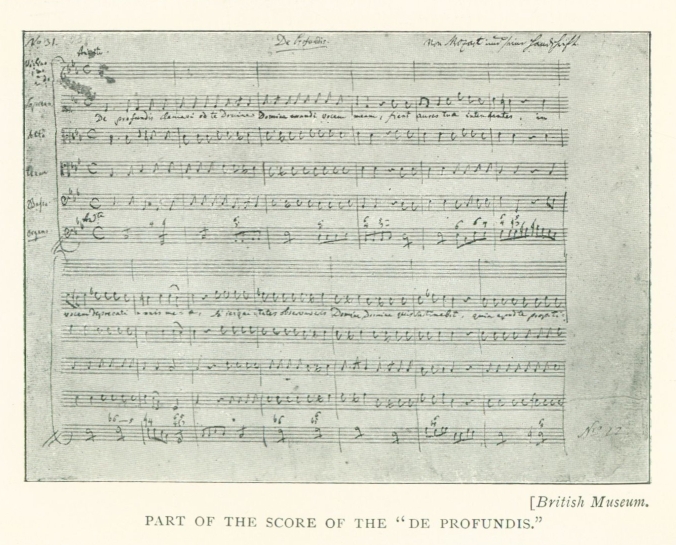 No 31. De Profundis. von Mozart und seine Handschrift
Andte
Soprano
Alto
Tenor
Basso
De profundis clamavi ad te Domine Domine exaudi vocem meam, fiant aures tuae intendentes, in
Andte
Organo
vocem deprecati onis me-ae, Si iniqui-tates observaveris Domine Domine quis sustinebit, quia apud te propiti-
[British Museum.
PART OF THE SCORE OF THE "DE PROFUNDIS."